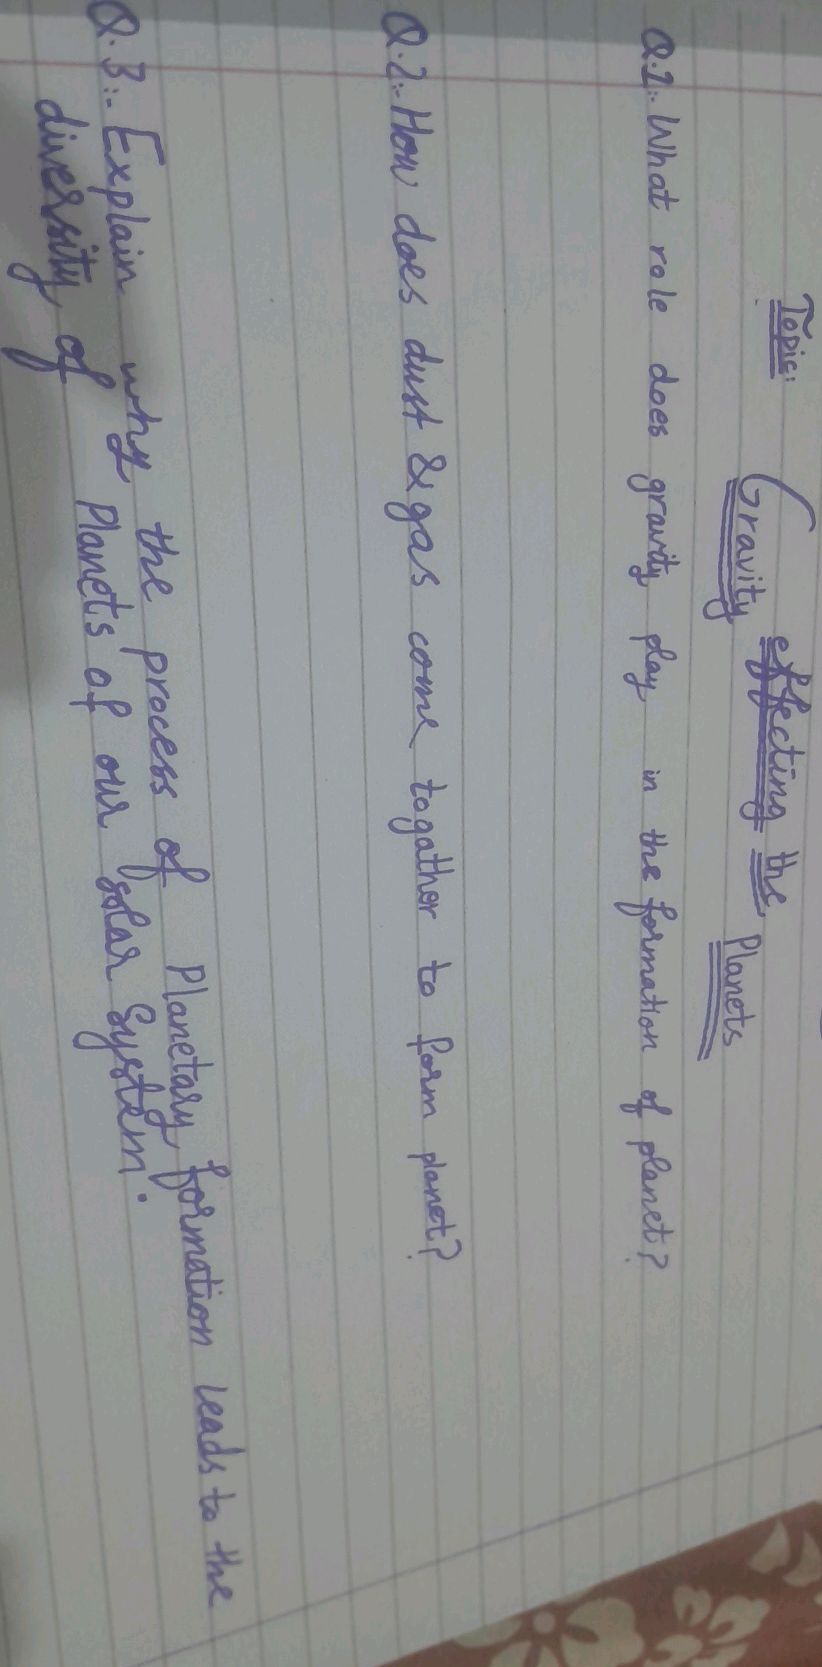 Topic: Gravity effecting the Planets
Q.1:- What role does gravity play in the formation of planet?
Q.2:- How does dust & gas come togather to form planet?
Q.3:- Explain why the process of Planetary formation leads to the
diversity of Planets of our Solar System.